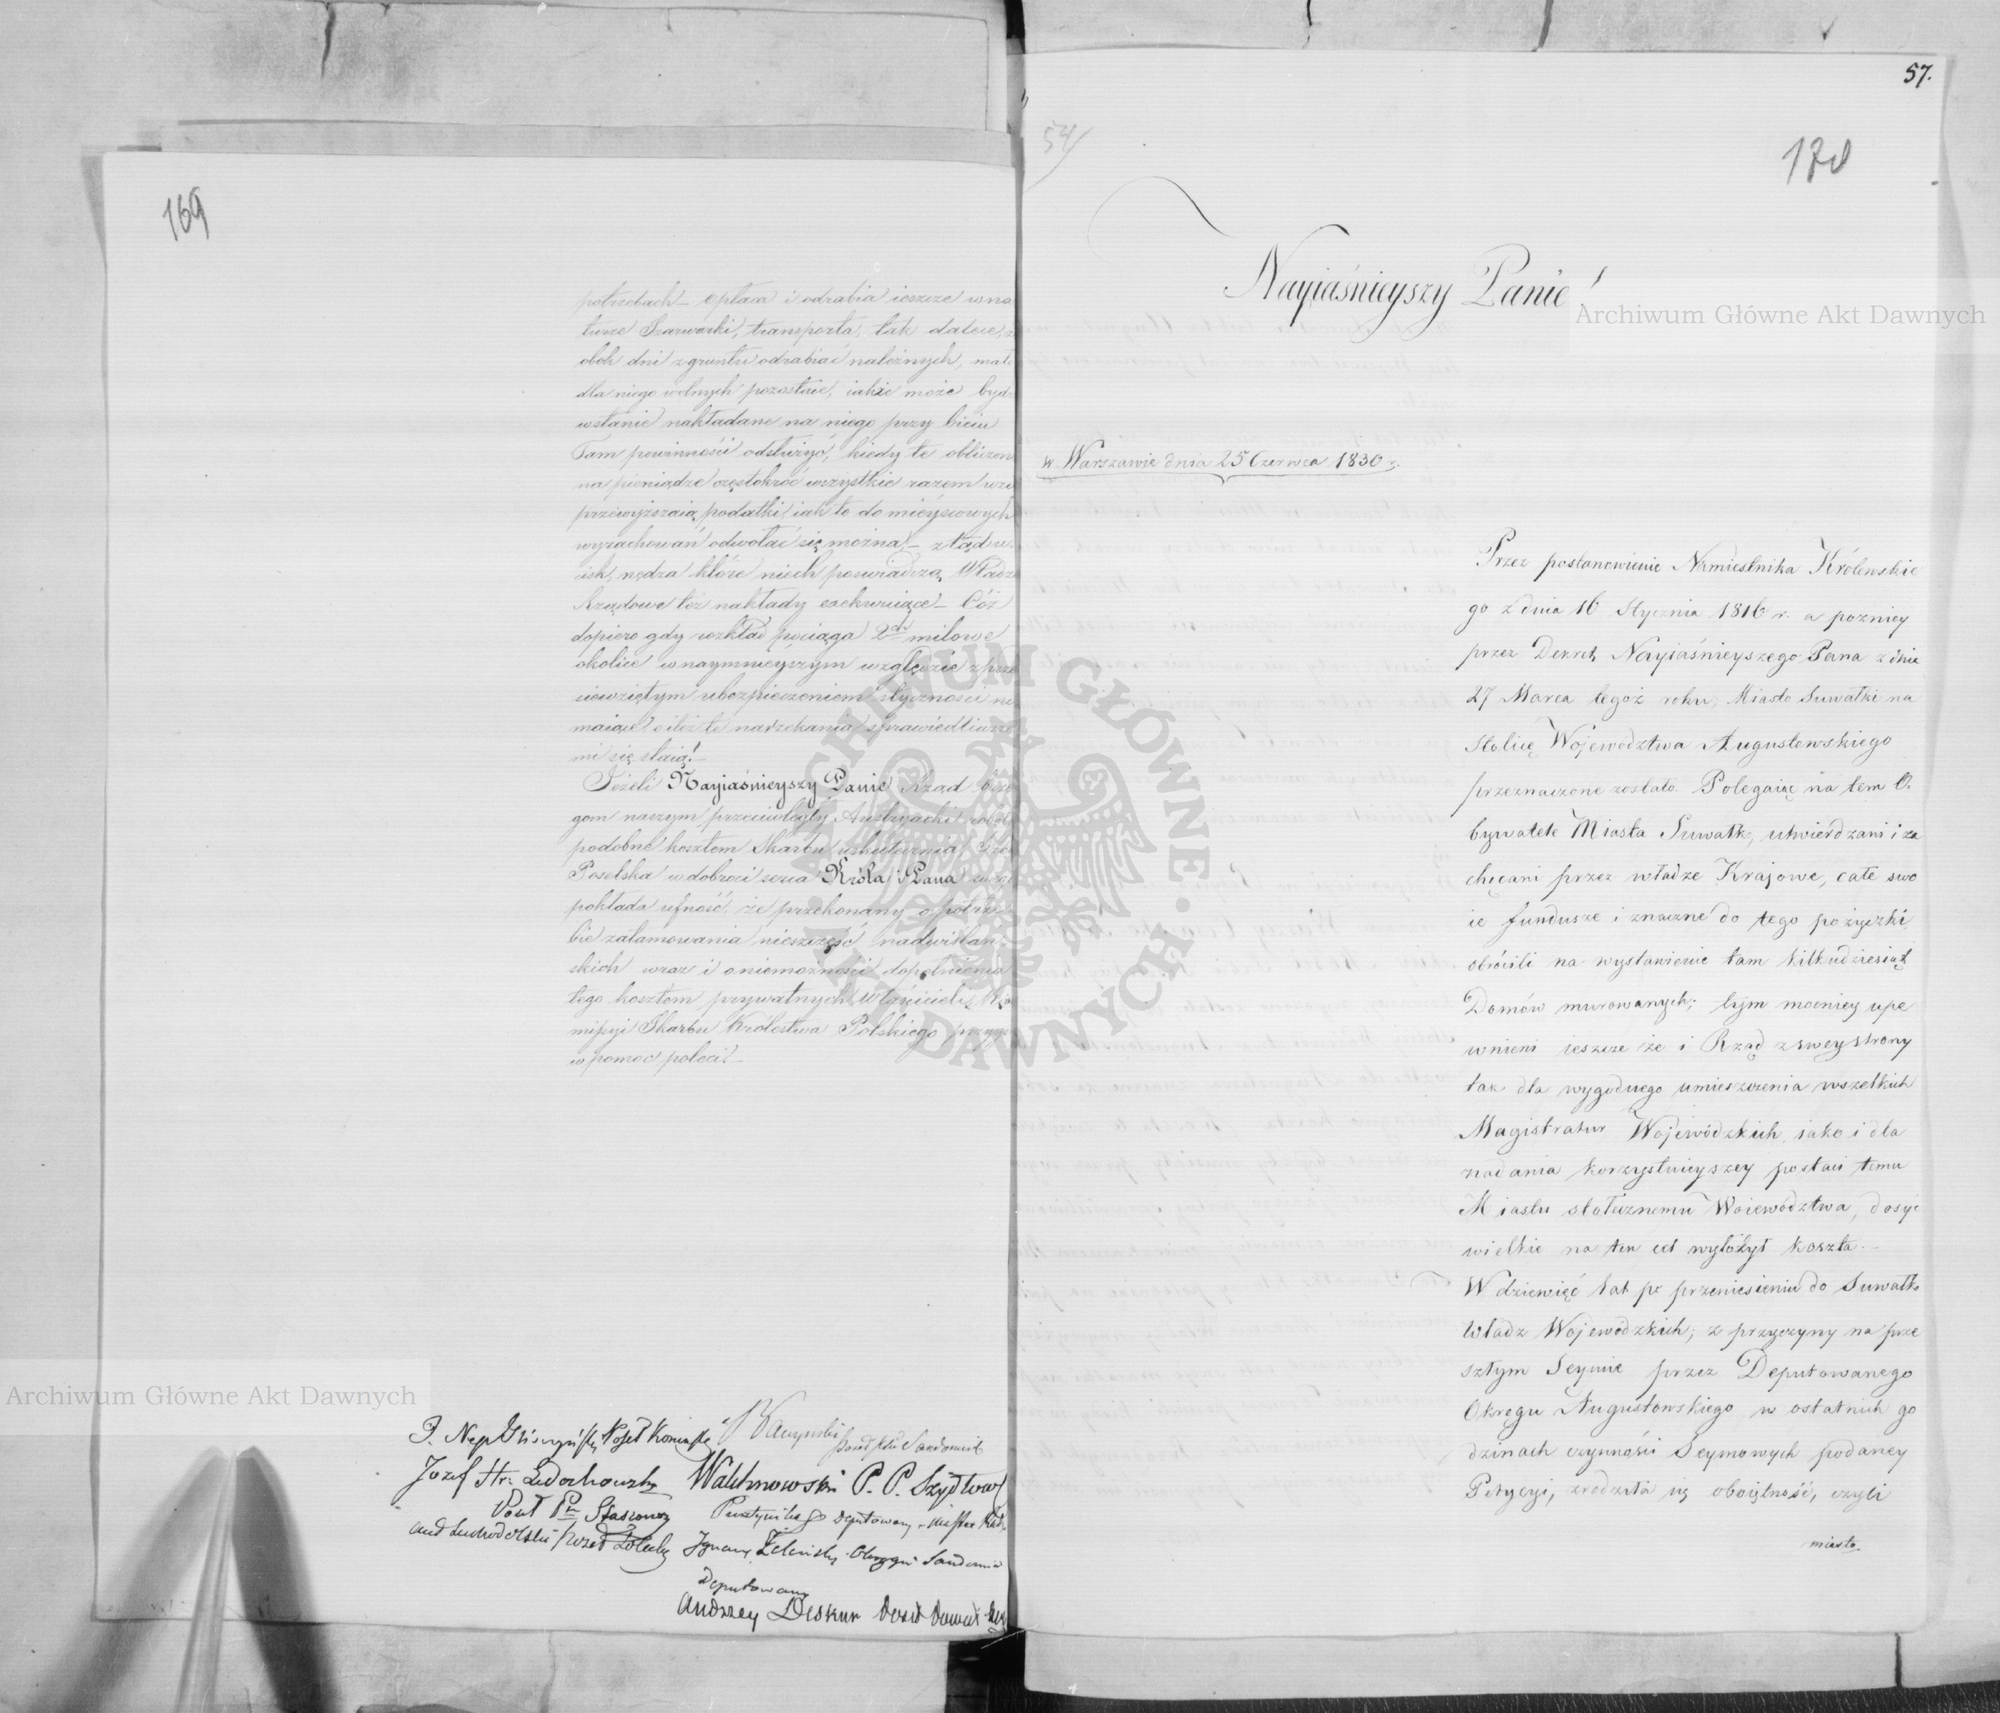 169
potrzebach – opłaca i odrabia ieszcze w na
turze Szarwarki, transporta, tak dalece,
obok dni z gruntu odrabiać należnych, mało
dla niego wolnych pozostaie, iakże może bydź
w stanie nakładane na niego przy biciu
Tam powinności odsłużyć, kiedy te obliczon
na pieniądze częstokroć wszystkie razem
przewyższaią podatki, iak to do mieyscowych
wyrachowań odwołać się można – ztąd
ucisk, nędza które niech poswiadczą Władze
Rządowe też nakłady – Cóż
dopiero gdy rozkład pociąga 2ch milowe
okolice w naymnieyszym względzie z prze
siewziętym ubezpieczeniem styczności nie
maiące! o ileż te narzekania sprawiedliwsze
mi się staią! –
Jeżeli Nayiaśnieyszy Panie Rząd brze
gom naszym przeciwległy Austryacki robot
podobne kosztem Skarbu uskutecznia, Izba
Poselska w dobroci serca Króla i Pana
pokłada ufność, że przekonany o potrze
bie zatamowania nieszczęść nadwiślań
skich wraz i o niemożności dopełnienia
tego kosztem prywatnych Właścicieli, Ko
missyi Skarbu Królestwa Polskiego
w pomoc poleci! –
Józef Hr: Ledochowski Walchnowski P. P. Szydłow
Poseł Pu Staszows Deputowany
Ignacy Zeleński Okręgu Sandomir
Deputowany
Andrzey Deskur Poseł
57.
54
170
Nayiaśnieyszy Panie!
w Warszawie dnia 25 Czerwca 1830 r.
Przez postanowienie Namiestnika Królewskie
go z dnia 16 Stycznia 1816 r. a pozniey
przez Dekret Nayiaśnieyszego Pana z dnia
27 Marca tegoż roku, Miasto Suwałki na
Stolicę Województwa Augustowskiego
przeznaczone zostało. Polegaiąc na tem O.
bywatele Miasta Suwałk, utwierdzani i za
chęcani przez władze Krajowe, całe swo
ie fundusze i znaczne do tego pożyczki
obrócili na wystawienie tam kilkudziesiąt
Domów murowanych; tym mocniey upe
wnieni ieszcze że i Rząd z swey strony
tak dla wygodnego umieszczenia wszelkich
Magistratur Wojewódzkich, iako i dla
nadania korzystnieyszey postaci temu
Miastu stołecznemu Woiewództwa, dosyć
wielkie na ten cel wyłożył koszta. –
W dziewięć lat po przeniesieniu do Suwałk
Władz Wojewódzkich; z przyczyny na prze
szłym Seymie przez Deputowanego
Okręgu Augustowskiego w ostatnich go
dzinach czynności Seymowych podaney
Petycyi, zrodziła się oboiętność, czyli
miasto
Archiwum Główne Akt Dawnych
Archiwum Główne Akt Dawnych
ARCHIWUM GŁÓWNE AKT DAWNYCH